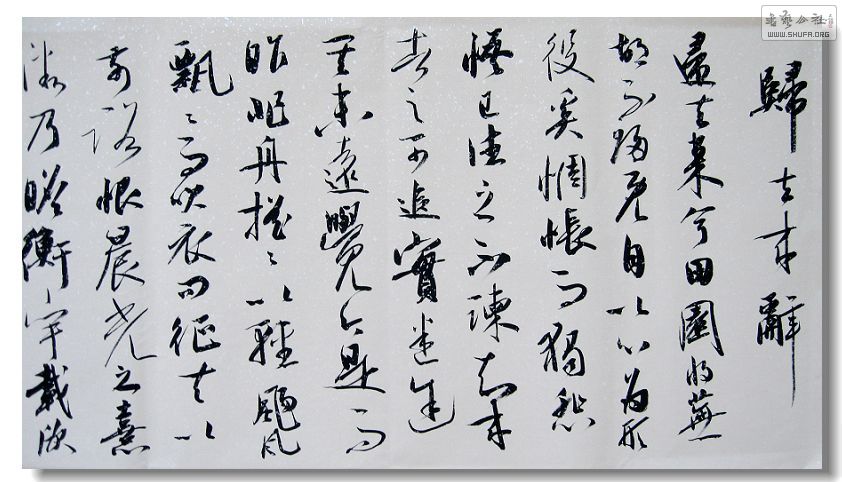 書藝公社
WWW.SHUFA.ORG
歸去來辭
歸去來兮田園將蕪
胡不歸既自以心為形
役奚惆悵而獨悲
悟已往之不諫知來
者之可追實迷途
其未遠覺今是而
昨非舟搖〻以輕颺
飄〻而吹衣問征夫以
前路恨晨光之熹
微乃瞻衡宇載欣